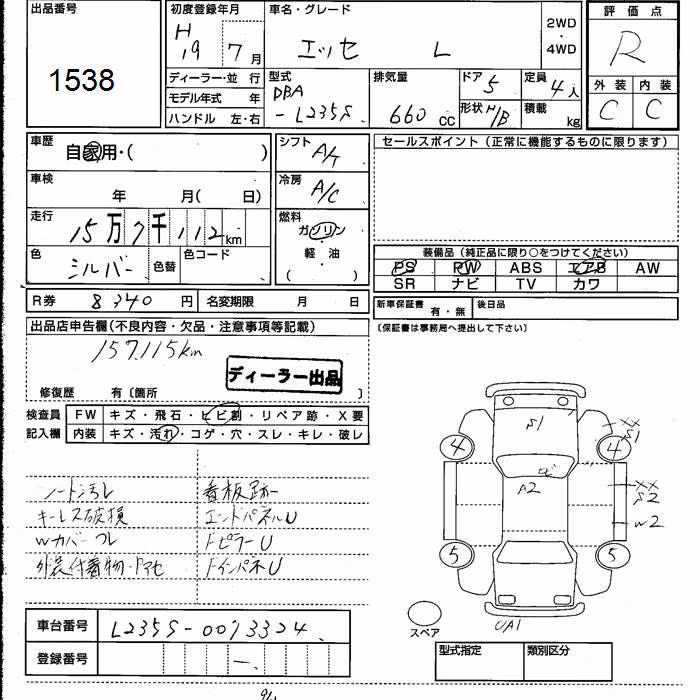 出品番号
1538
初度登録年月
H
19 7月
車名・グレード
エッセ L
2WD
・
4WD
評価点
R
ディーラー・並行
モデル年式 年
ハンドル 左・右
型式
DBA
-L235S
排気量
660cc
ドア 5
形状 H/B
定員 4人
積載 kg
外装 内装
C C
車歴
自家用・( )
車検
年 月( 日)
走行
15万7千112km
色
シルバー
色替
色コード
シフト
A/T
冷房
A/C
燃料
ガソリン
・
軽油
( )
セールスポイント(正常に機能するものに限ります)
装備品(純正品に限り○をつけてください)
PS PW ABS エアB AW
SR ナビ TV カワ
R券 8340円 名変期限 月 日
新車保証書 有・無 後日品
(保証書は事務局へ提出して下さい)
出品店申告欄(不良内容・欠品・注意事項等記載)
157,115km
ディーラー出品
修復歴 有〔箇所 〕
検査員
記入欄
FW キズ・飛石・ヒビ割・リペア跡・X要
内装 キズ・汚れ・コゲ・穴・スレ・キレ・破レ
シート汚レ
キーレス破損
Wカバーワレ
看板跡
エンドパネルU
FピラーU
FインパネU
S1
XX
S1
4
4
A2
XX
S2
W2
5
5
UA1
スペア
車台番号 L235S-0073324
登録番号 ー
型式指定 類別区分